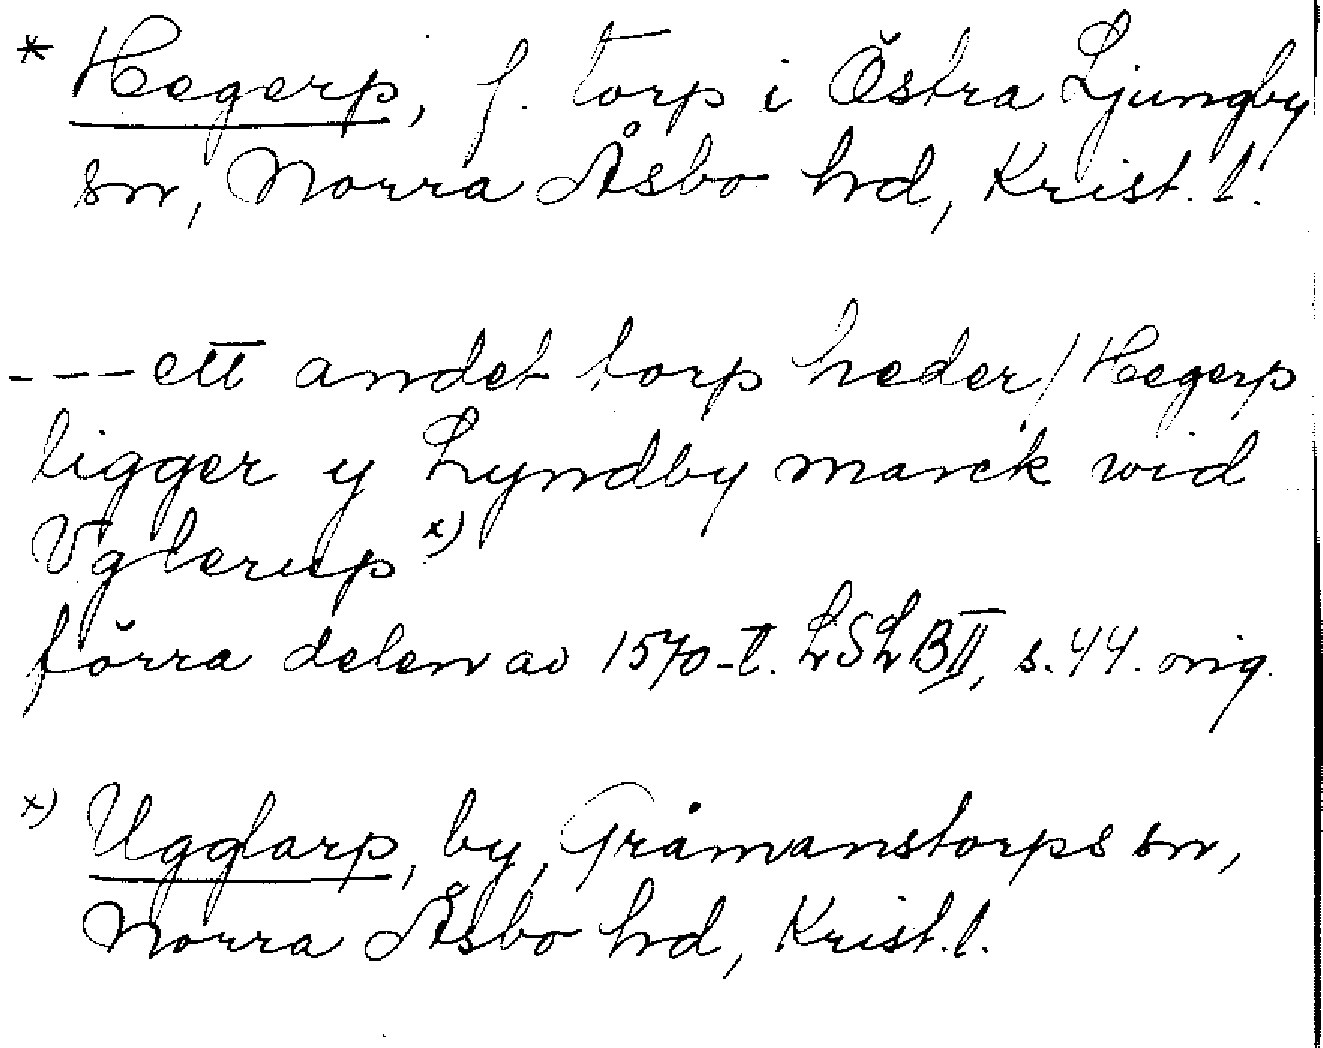 * Hegerp, f. torp i Östra Ljungby
sn, Norra Åsbo hrd, Krist. l.
--- ett andet torp heder / Hegerp
ligger y Lyndby marck wid
Vglerup x)
förra delen av 1570-t. LSLB II, s. 44. orig.
x) Ugglarp, by, Gråmanstorps sn,
Norra Åsbo hrd, Krist. l.